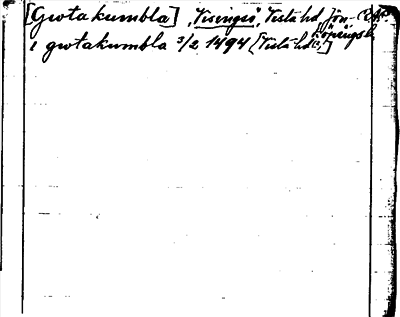 [Grotakumbla], Visingsö, Vista hd, Jön-
köpingsl.
i grotakumbla 3/2 1494 [Vista hd]